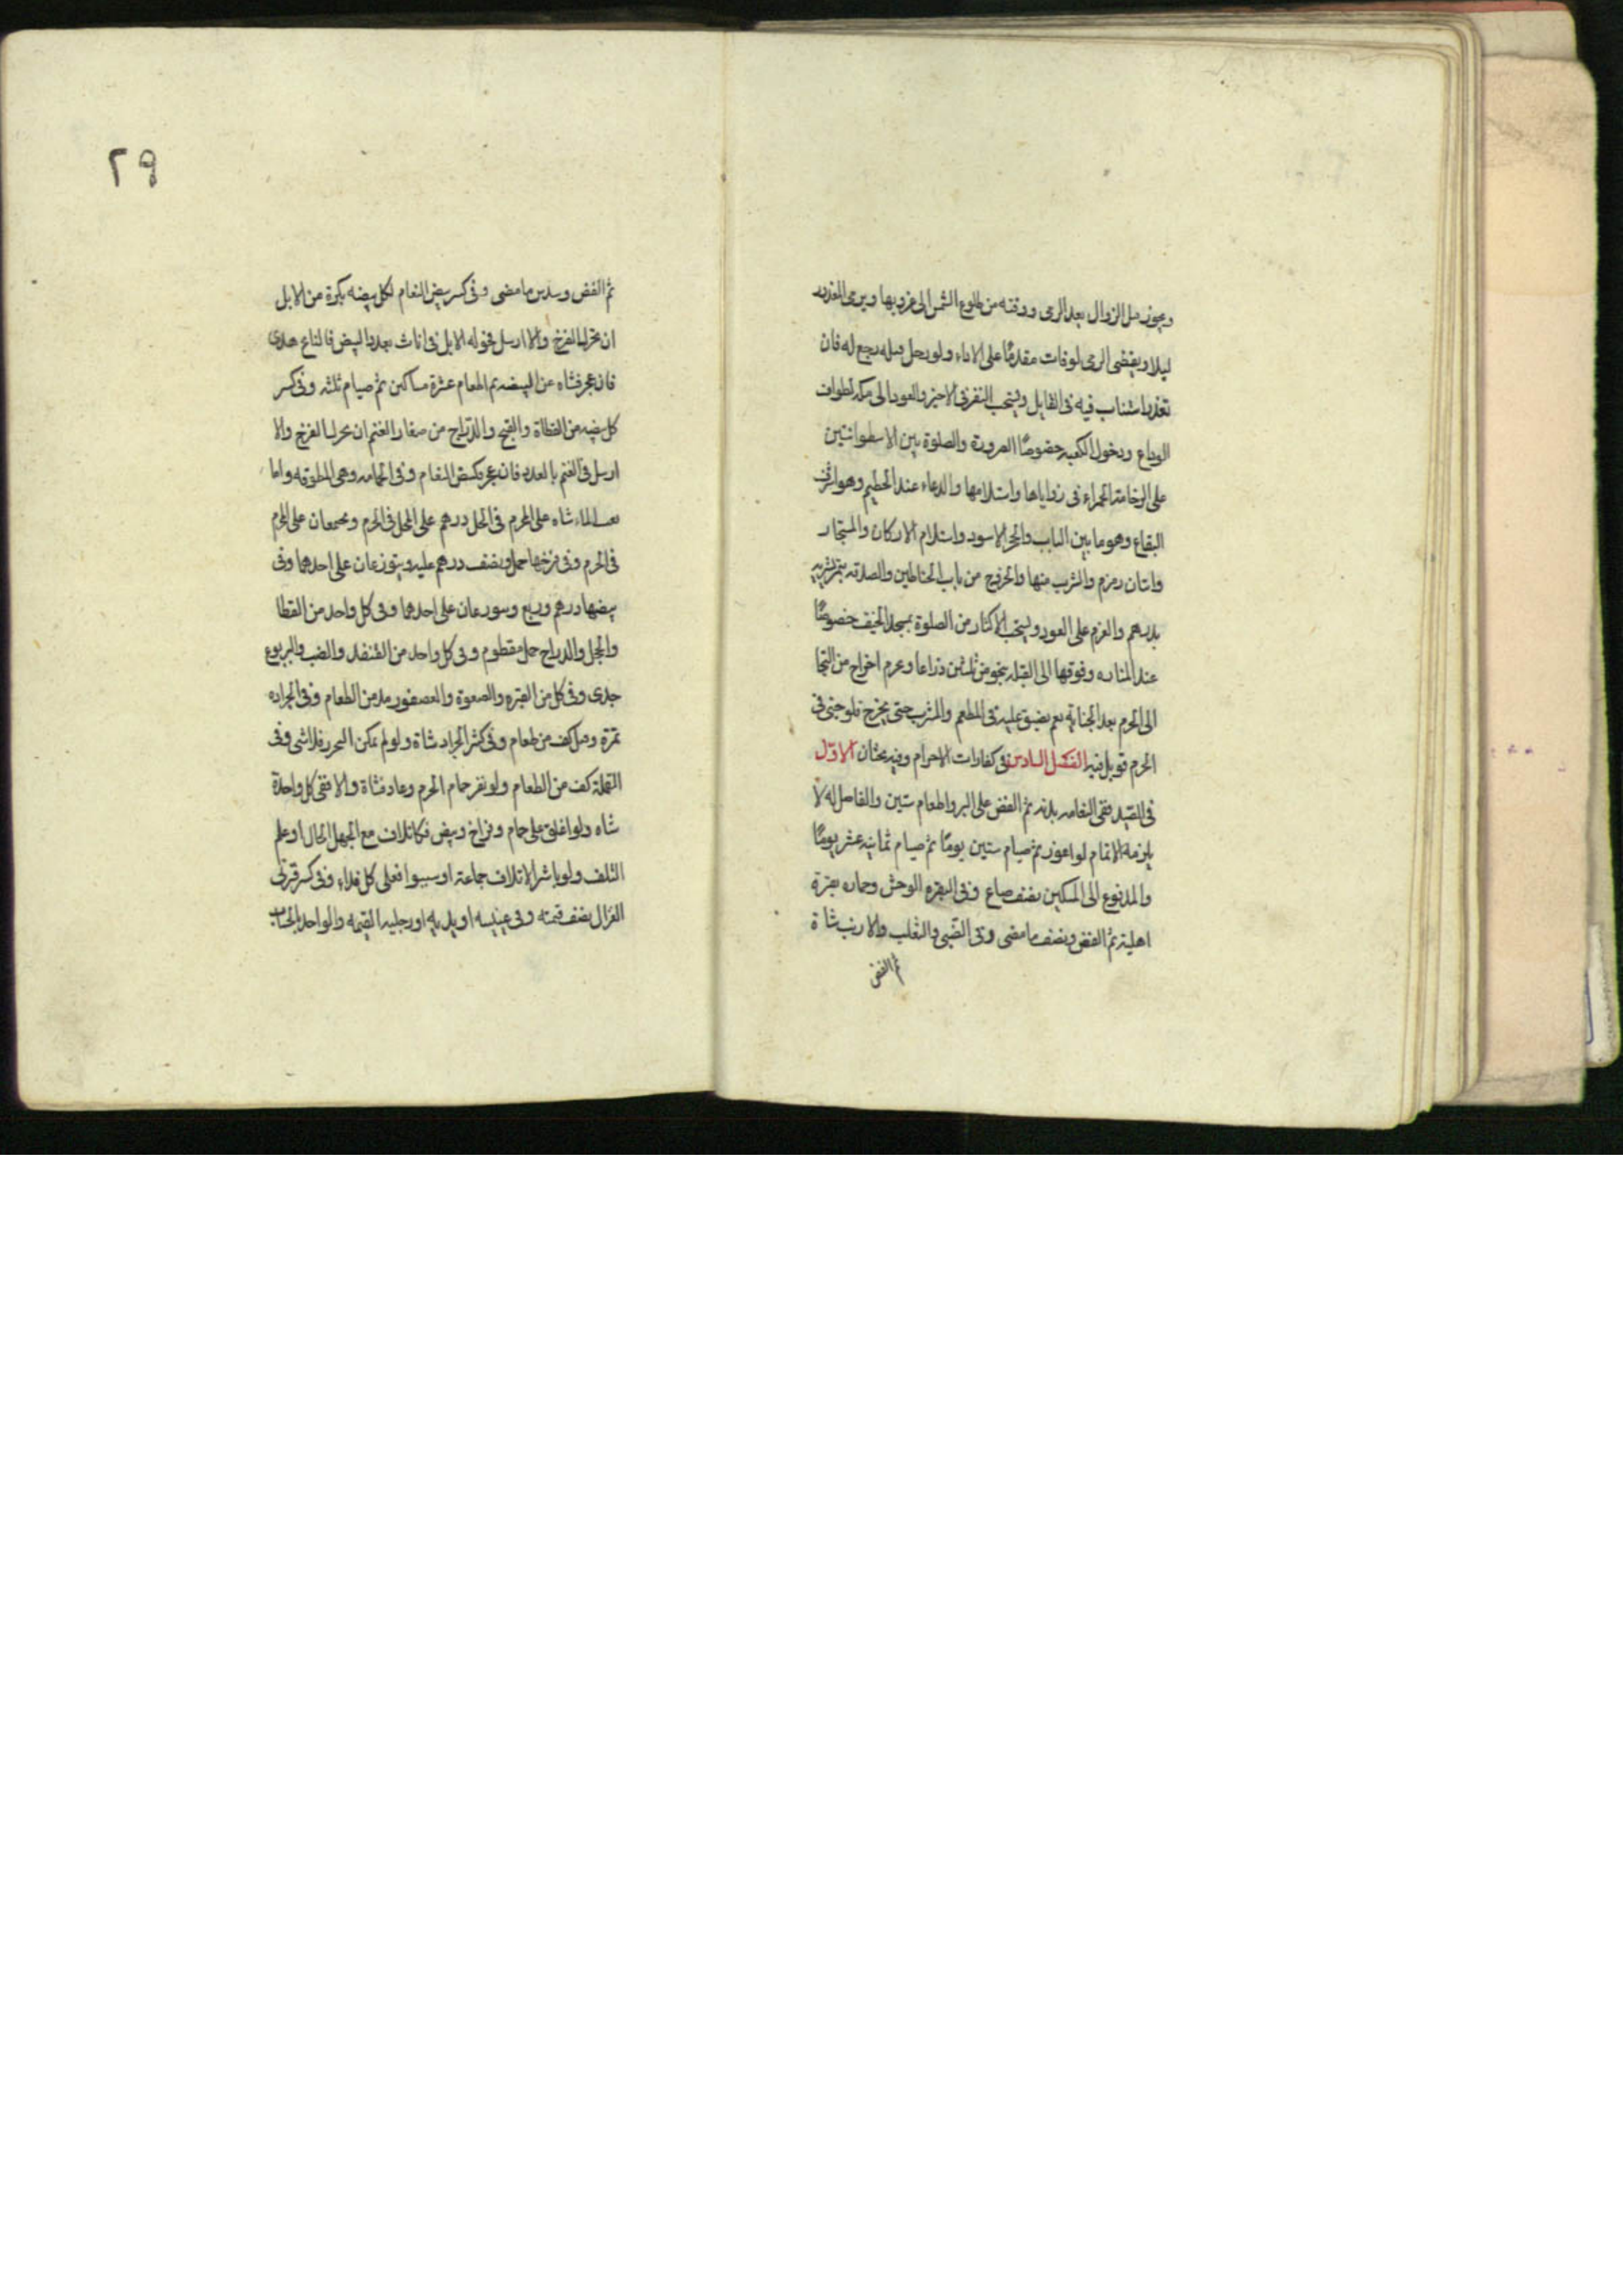 ويجوز قبل الزوال بعد الرمى ووقته من طلوع الشمس الى غروبها ويرمى المعذور
ليلا ويقضى الرمى لوفات مقدمًا على الاداء ولو رحل قبله رجع له فان
تعذر استناب فيه فى القابل ويستحب النفر فى الاخير والعود الى مكه لطواف
الوداع ودخول الكعبه خصوصًا الصرورة والصلوة بين الاسطوانتين
على الرخامة الحمراء فى زواياها واستلامها والدعاء عند الحطيم وهو اشرف
البقاع وهو ما بين الباب والحجر الاسود واستلام الاركان والمستجار
واتيان زمزم والشرب منها والخروج من باب الحناطين والصدقه بتمر يشتريه
بدرهم والعزم على العود ويستحب الاكثار من الصلوة بمسجد الخيف خصوصًا
عند المناره وفوقها الى القبله بنحو من ثلثين ذراعا ويحرم اخراج من التجا
الى الحرم بعد الجنايه نعم يضيق عليه فى المطعم والمشرب حتى يخرج فلو جنى فى
الحرم قوبل فيه الفصل السادس فى كفارات الاحرام وفيه بحثان الاول
فى الصيد ففى النعامه بدنه ثم الفض على البر واطعام ستين والفاضل له لا
يلزمه الاتمام لو اعوز ثم صيام ستين يومًا ثم صيام ثمانيه عشر يومًا
والمدفوع الى المسكين نصف صاع وفى البقره الوحش وحماره بقرة
اهلية ثم الفض ونصف ما مضى وفى الظبى والثعلب والارنب شاة
ثم الفض
٢٩
ثم الفض وسدس ما مضى وفى كسر بيض النعام لكل بيضه بكرة من الابل
ان تحرك الفرخ والا ارسل فحولة الابل فى اناث بعدد البيض فالناتج هدى
فان عجز فشاه عن البيضه ثم اطعام عشرة مساكين ثم صيام ثلثه وفى كسر
كل بيضه من القطاة والقبج والدراج من صغار الغنم ان تحرك الفرخ والا
ارسل فى الغنم بالعدد فان عجز فكبيض النعام وفى الحمامه وهى المطوقه واما
تعب الماء شاه على المحرم فى الحل درهم على المحل فى الحرم ويجتمعان على المحرم
فى الحرم وفى فرخها حمل ونصف درهم عليه ويتوزعان على احدهما وفى
بيضها درهم وربع ويتوزعان على احدهما وفى كل واحد من القطا
والحجل والدراج حمل مفطوم وفى كل واحد من القنفذ والضب واليربوع
جدى وفى كل من القبره والصعوة والعصفور مد من الطعام وفى الجراده
تمرة وقيل كف من طعام وفى كثير الجراد شاة ولو لم يمكن التحرز فلا شى وفى
القملة كف من الطعام ولو نفر حمام الحرم وعاد فشاة والا ففى كل واحدة
شاه ولو اغلق على حمام وفراخ وبيض فكالاتلاف مع الجهل الحال او علم
التلف ولو باشر الاتلاف جماعة او سببوا فعلى كل فداء وفى كسر قرنى
الغزال نصف قيمته وفى عينيه او يديه او رجليه القيمه والواحد بالحساب